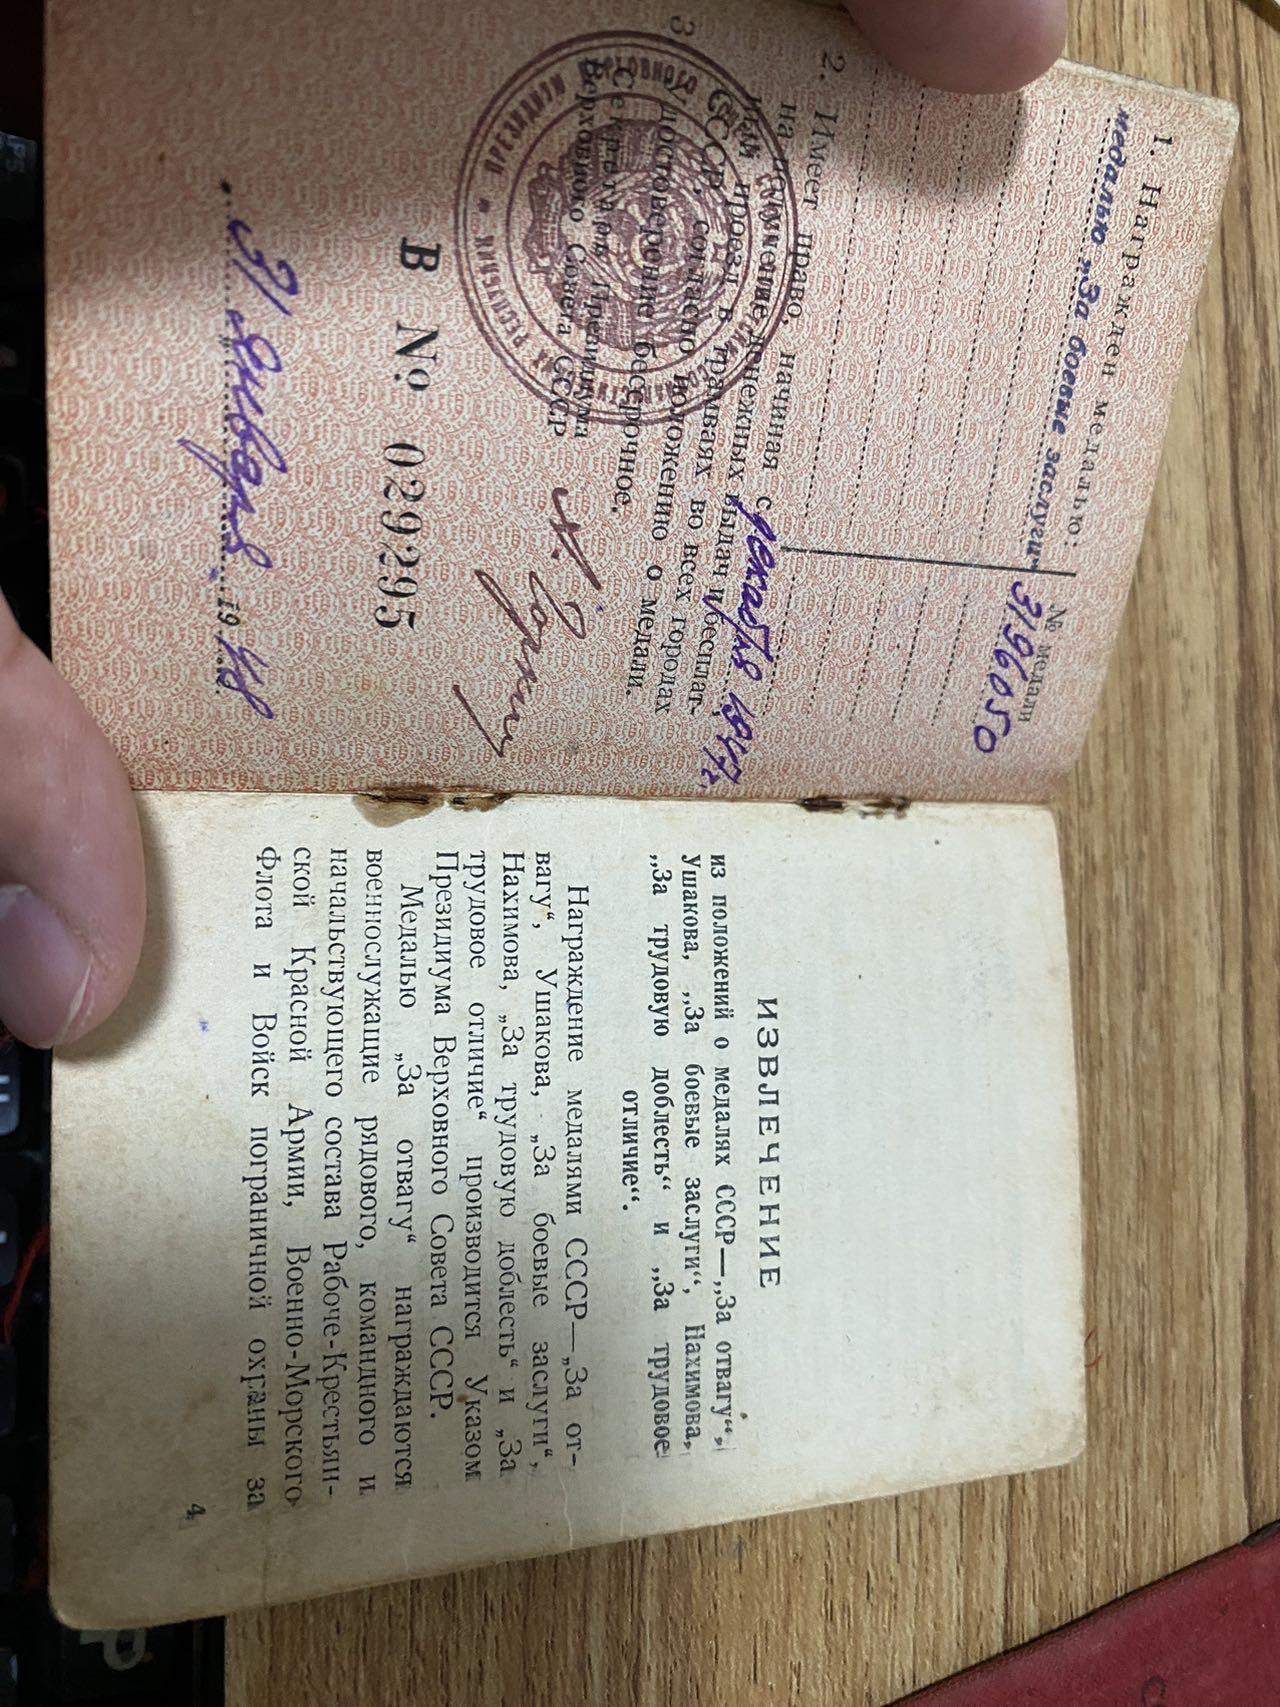 1. Награжден медалью:
№ медали
медалью „За боевые заслуги“ 3196050
2. Имеет право, начиная с декабря 1947 г.
на получение денежных выдач и бесплат-
ный проезд в трамваях во всех городах
СССР, согласно положению о медали.
3 Удостоверение бессрочное.
Секретарь Президиума
Верховного Совета СССР
В № 029295
„31“ января 1948
ИЗВЛЕЧЕНИЕ
из положений о медалях СССР—„За отвагу“,
Ушакова, „За боевые заслуги“, Нахимова,
„За трудовую доблесть“ и „За трудовое
отличие“.
Награждение медалями СССР—„За от-
вагу“, Ушакова, „За боевые заслуги“,
Нахимова, „За трудовую доблесть“ и „За
трудовое отличие“ производится Указом
Президиума Верховного Совета СССР.
Медалью „За отвагу“ награждаются
военнослужащие рядового, командного и
начальствующего состава Рабоче-Крестьян-
ской Красной Армии, Военно-Морского
Флота и Войск пограничной охраны за
4